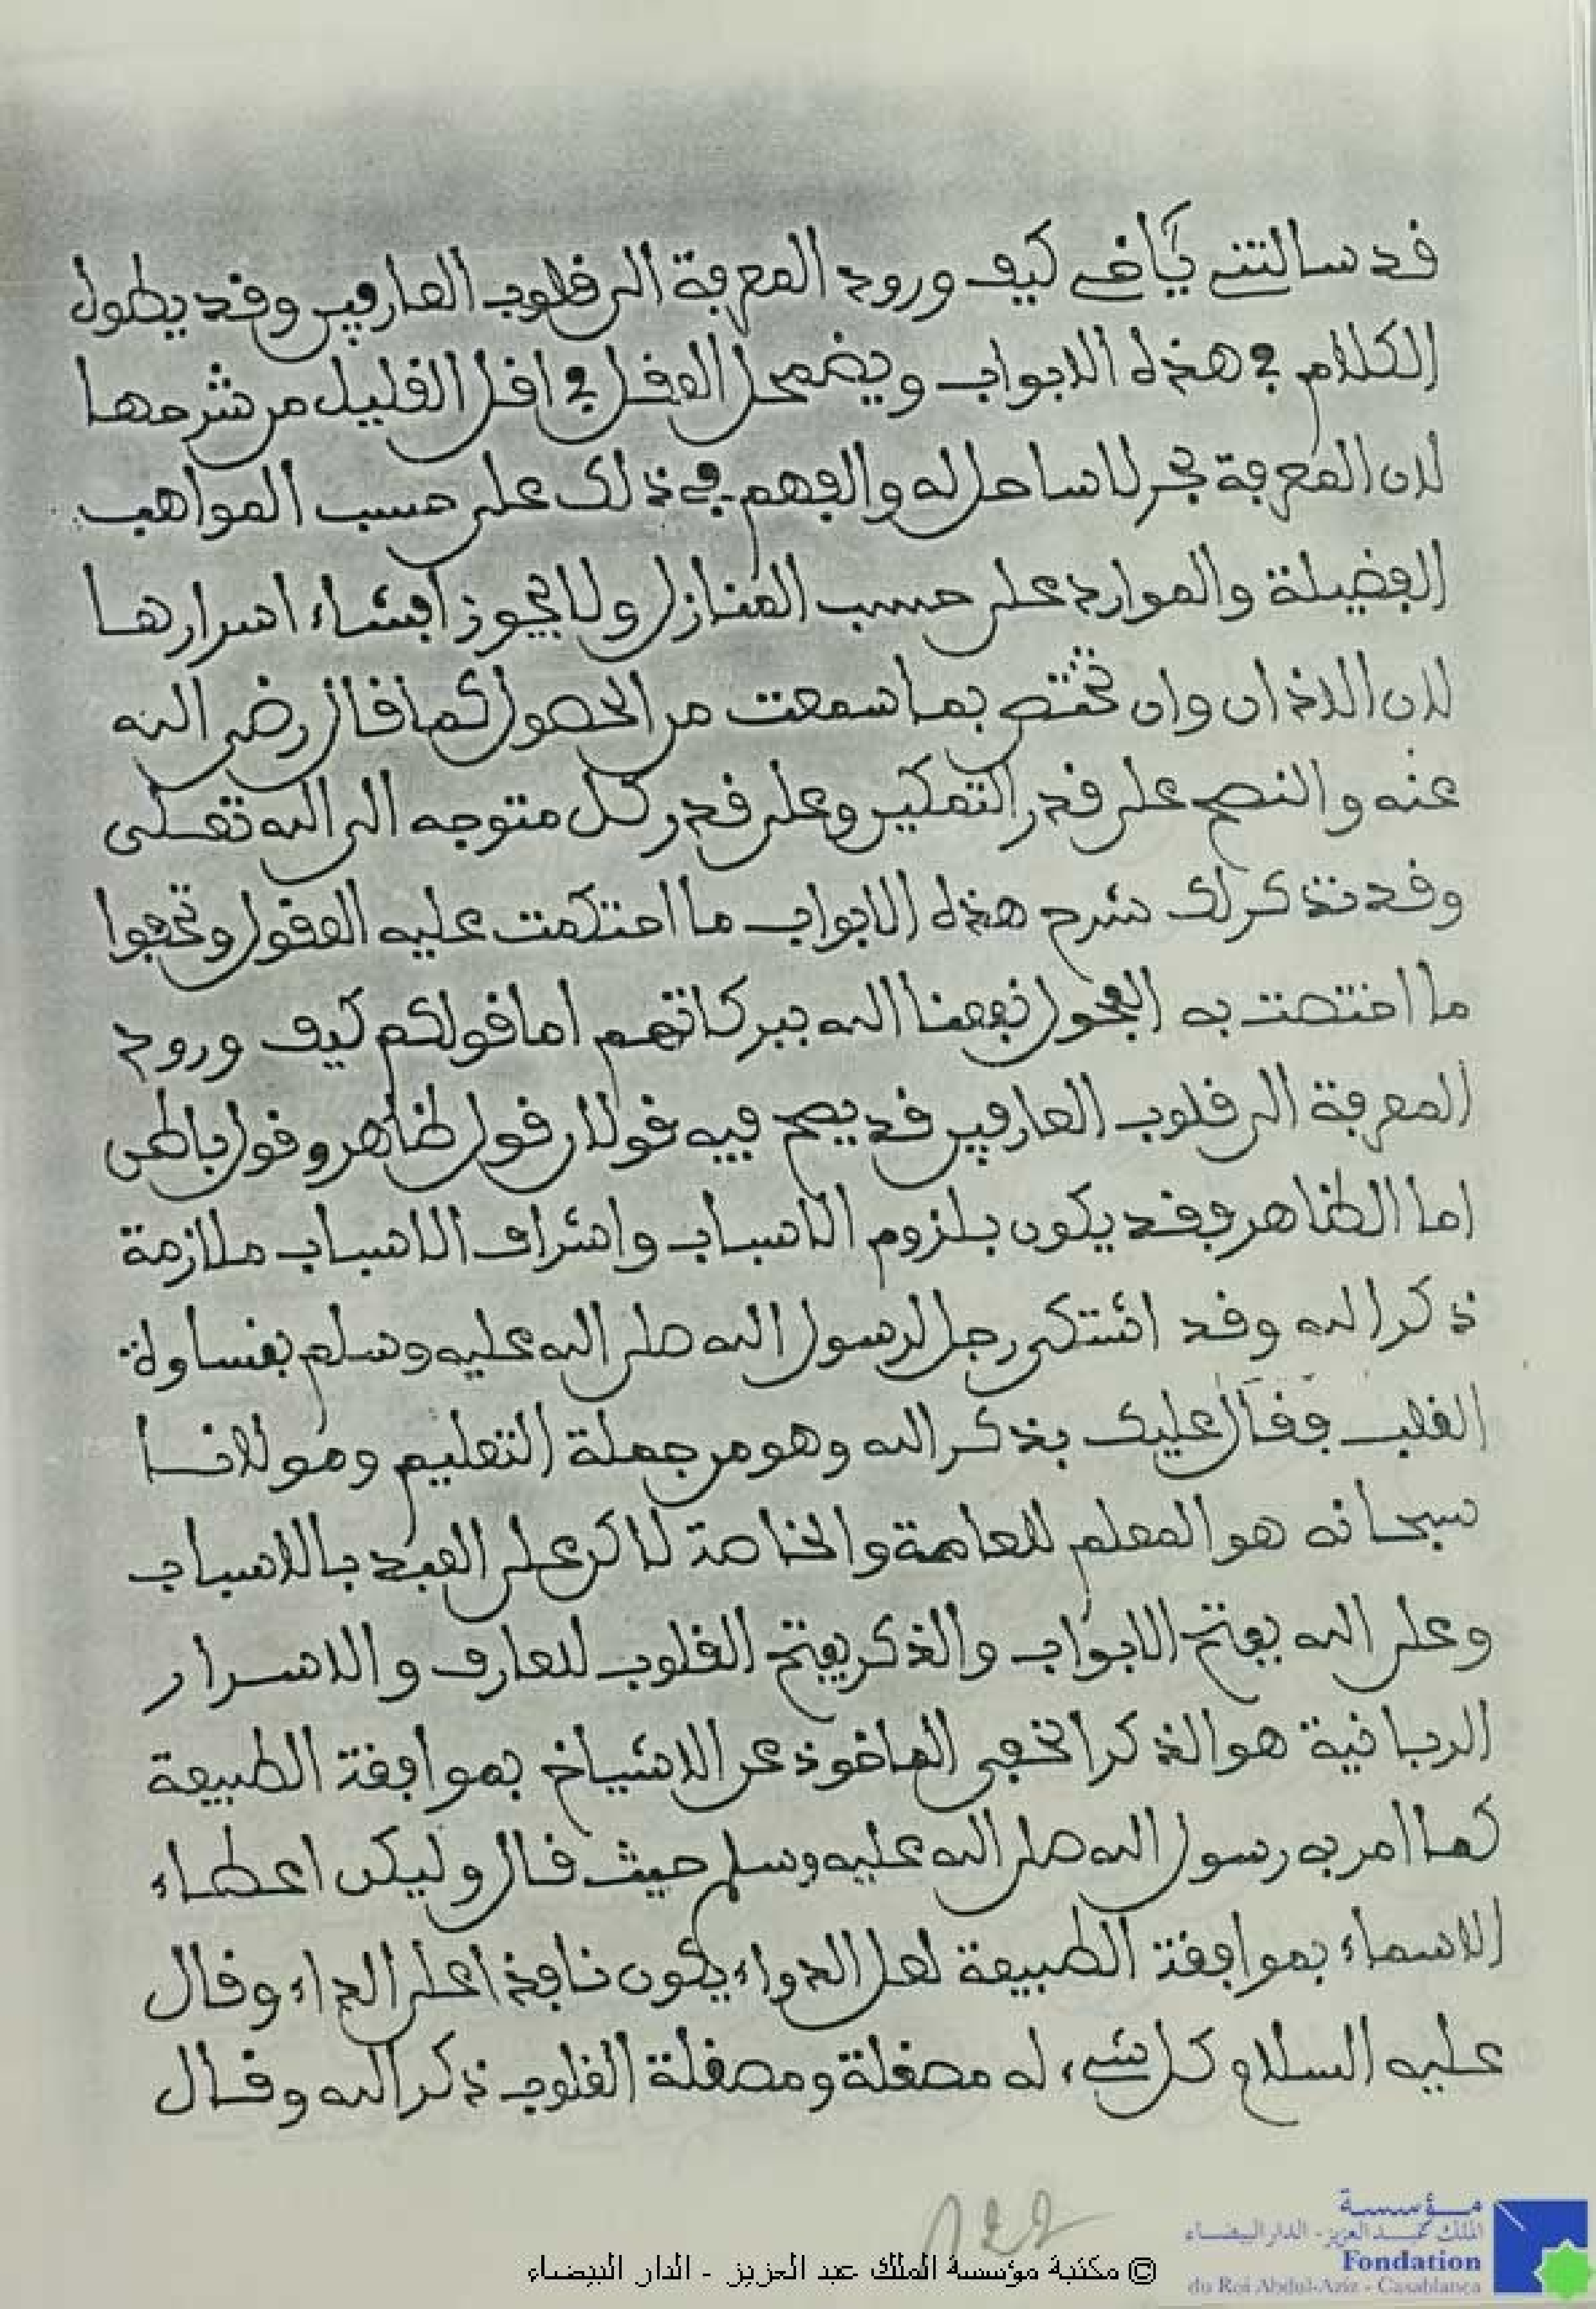 قد سالتني يا أخي كيف ورود المعرفة الى قلوب العارفين وقد يطول
الكلام في هذه الابواب ويضمحل العقل في اقل القليل من شرحها
لان المعرفة بحر لا ساحل له والفهم في ذلك على حسب المواهب
الفضيلة والموارد على حسب المنازل ولا يجوز افشاء اسرارها
لان الاذان وان تختص بما سمعت من الحصول كما قال رضي الله
عنه والنصح على قدر التمكين وعلى قدر كل متوجه الى الله تعلى
وقد نذكر لك شرح هذه الابواب ما احتكمت عليه العقول وتحفوا
ما اختصت به الفحول نفعنا الله ببركاتهم اما قولكم كيف ورود
المعرفة الى قلوب العارفين قد يصح فيه قولان قول ظاهر وقول باطن
اما الظاهر فقد يكون بلزوم الاسباب واشراف الاسباب ملازمة
ذكر الله وقد اشتكى رجل لرسول الله صلى الله عليه وسلم بقساوة
القلب فقال عليك بذكر الله وهو من جملة التعليم ومولانا
سبحانه هو المعلم للعامة والخاصة لاكن على العبد بالاسباب
وعلى الله بفتح الابواب والذكر يفتح القلوب للعارف والاسرار
الربانية هو الذكر الخفي الماخوذ عن الاشياخ بموافقة الطبيعة
كما امر به رسول الله صلى الله عليه وسلم حيث قال وليكن اعطاء
الاسماء بموافقة الطبيعة لعل الدواء يكون نافذا على الداء وقال
عليه السلام كل شيء له مصقلة ومصقلة القلوب ذكر الله وقال
122
© مكتبة مؤسسة الملك عبد العزيز - الدار البيضاء
مؤسسة
الملك عبد العزيز - الدار البيضاء
Fondation
du Roi Abdul-Aziz - Casablanca